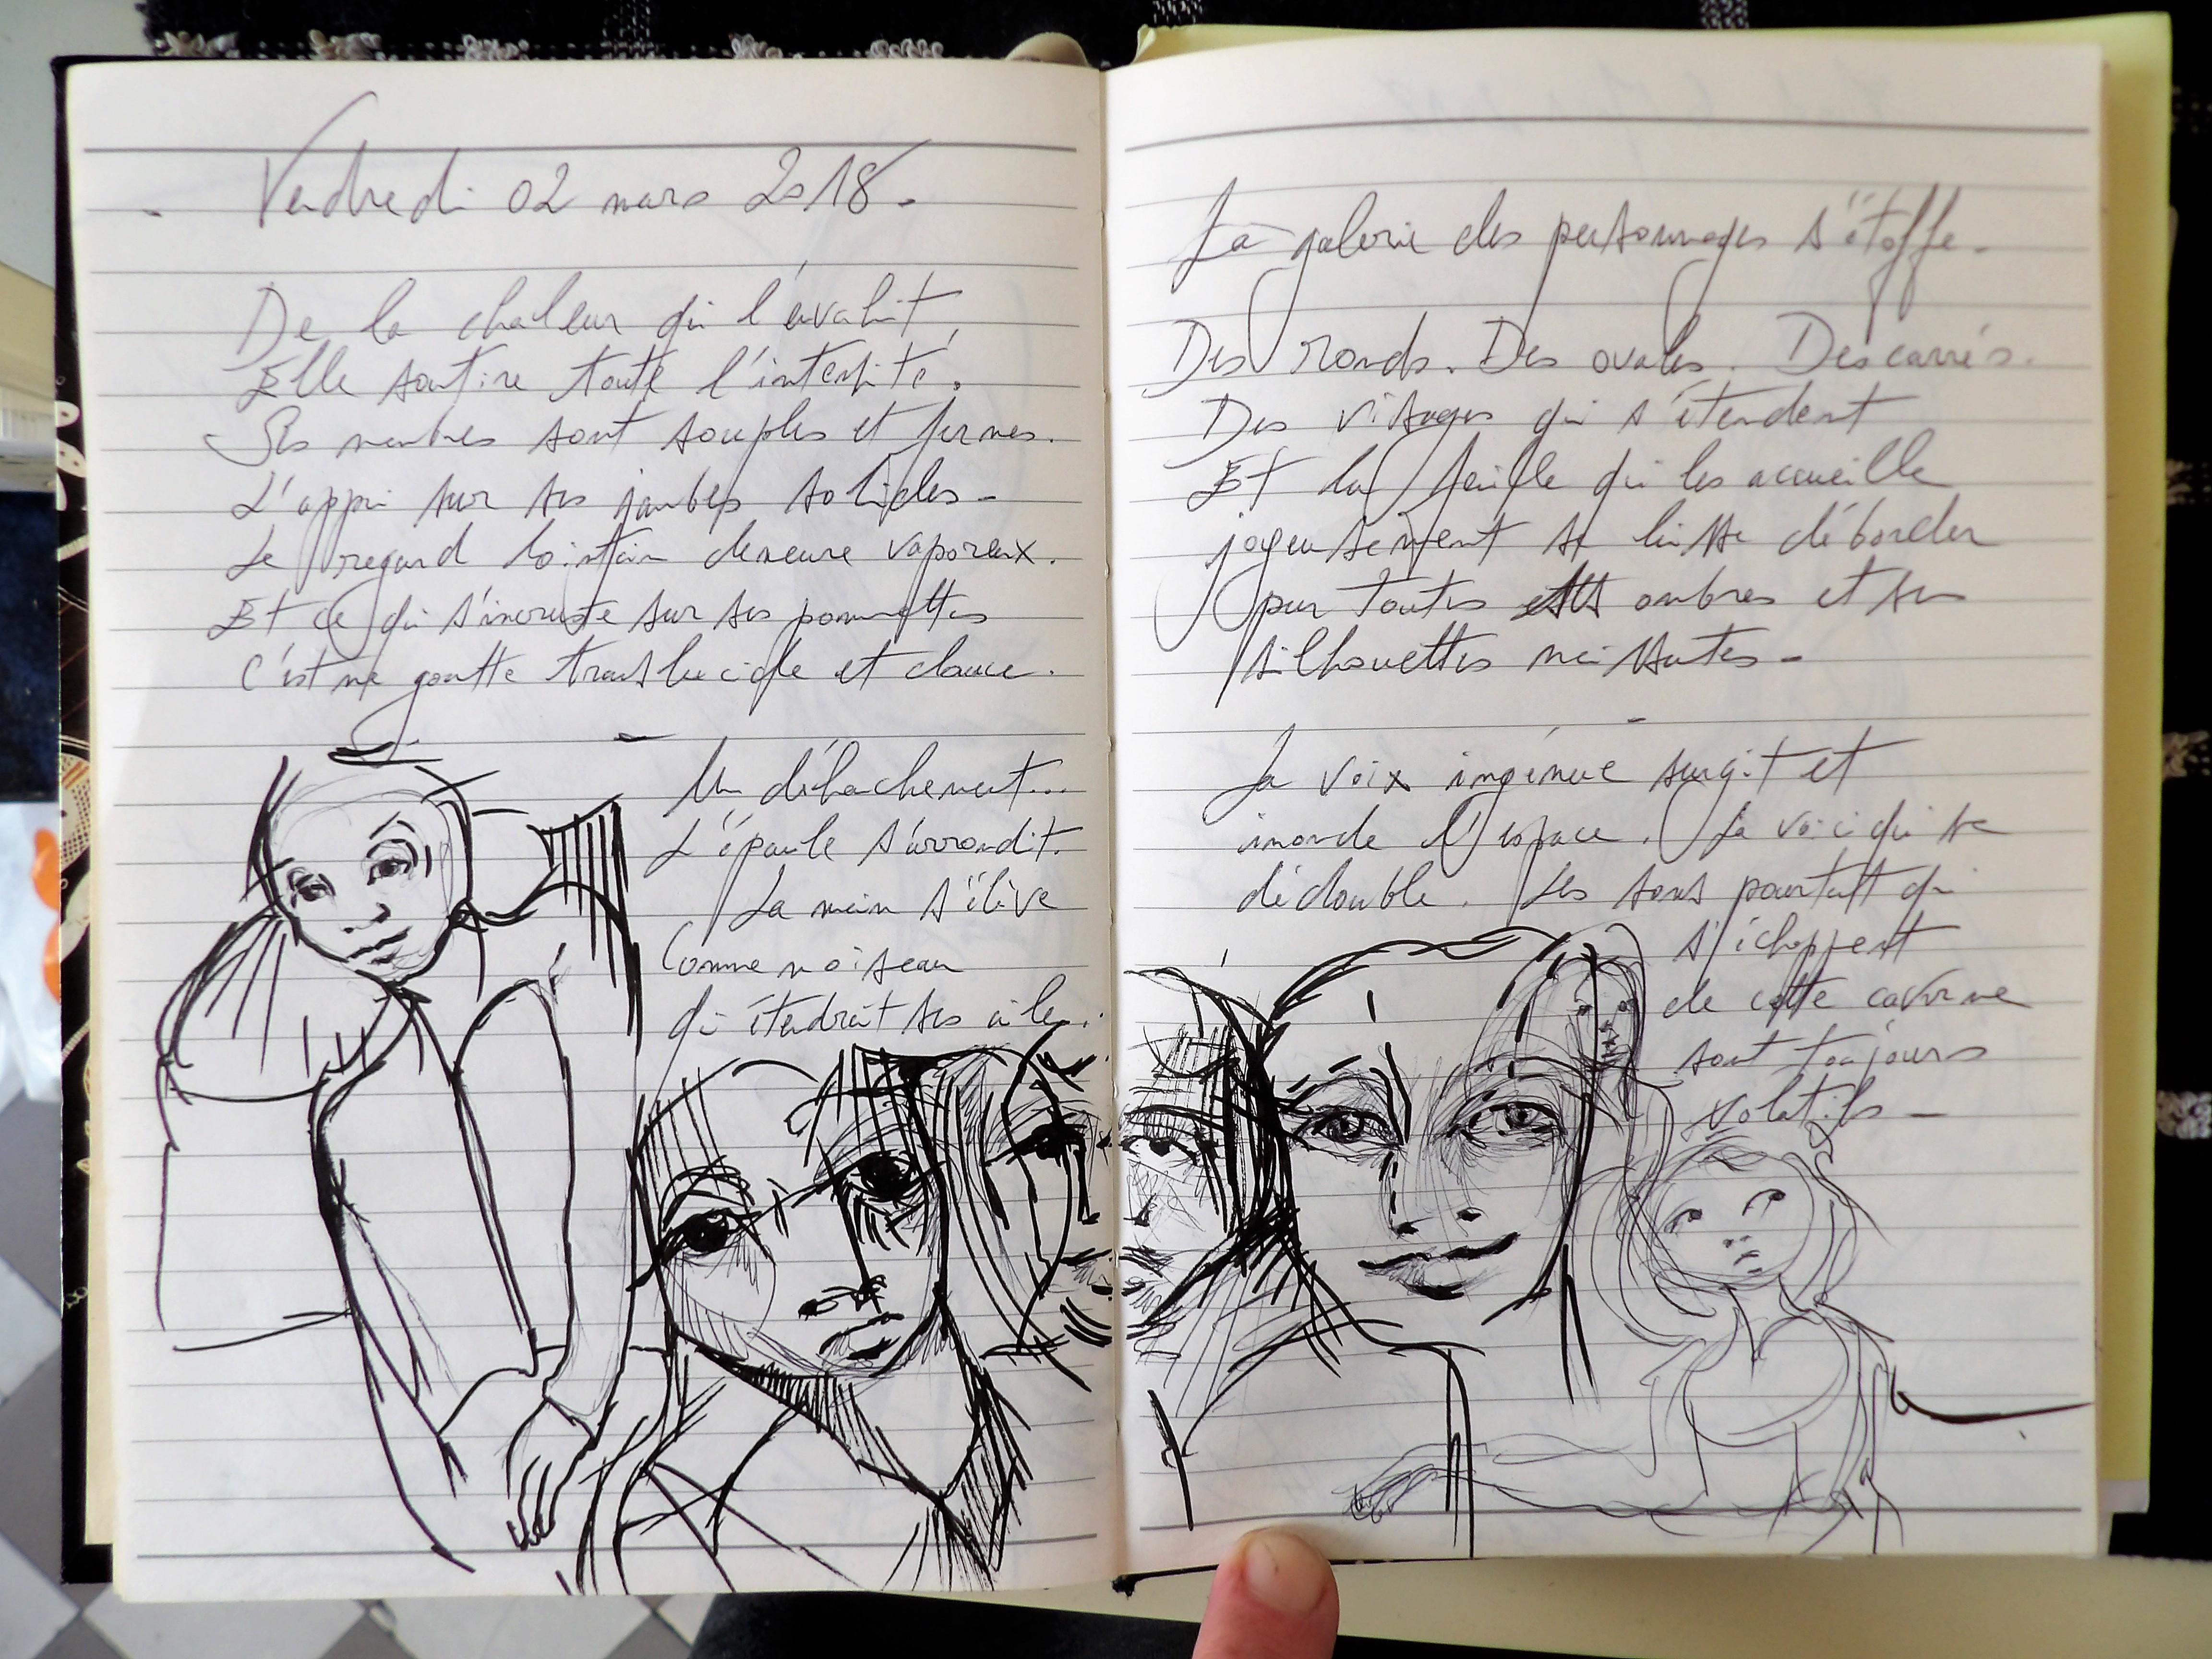 Vendredi 02 mars 2018.
De la chaleur qui l'envahit,
Elle soutire toute l'intensité.
Ses membres sont souples et fermes.
L'appui sur ses jambes solides -
Le regard lointain demeure vaporeux.
Et ce qui s'incruste sur ses pommettes
C'est une goutte translucide et douce.
-
Un détachement...
L'épaule s'arrondit.
La main s'élève
Comme un oiseau
qui étendrait ses ailes.
La galerie des personnages s'étoffe.
Des ronds. Des ovales. Des carrés.
Des visages qui s'étendent
Et la feuille qui les accueille
joyeusement se laisse déborder
par toutes ombres et ses
silhouettes naissantes -
-
La voix ingénue surgit et
inonde l'espace. La voici qui se
dédouble. Les sons pourtant qui
s'échappent
de cette caverne
sont toujours
volatils -